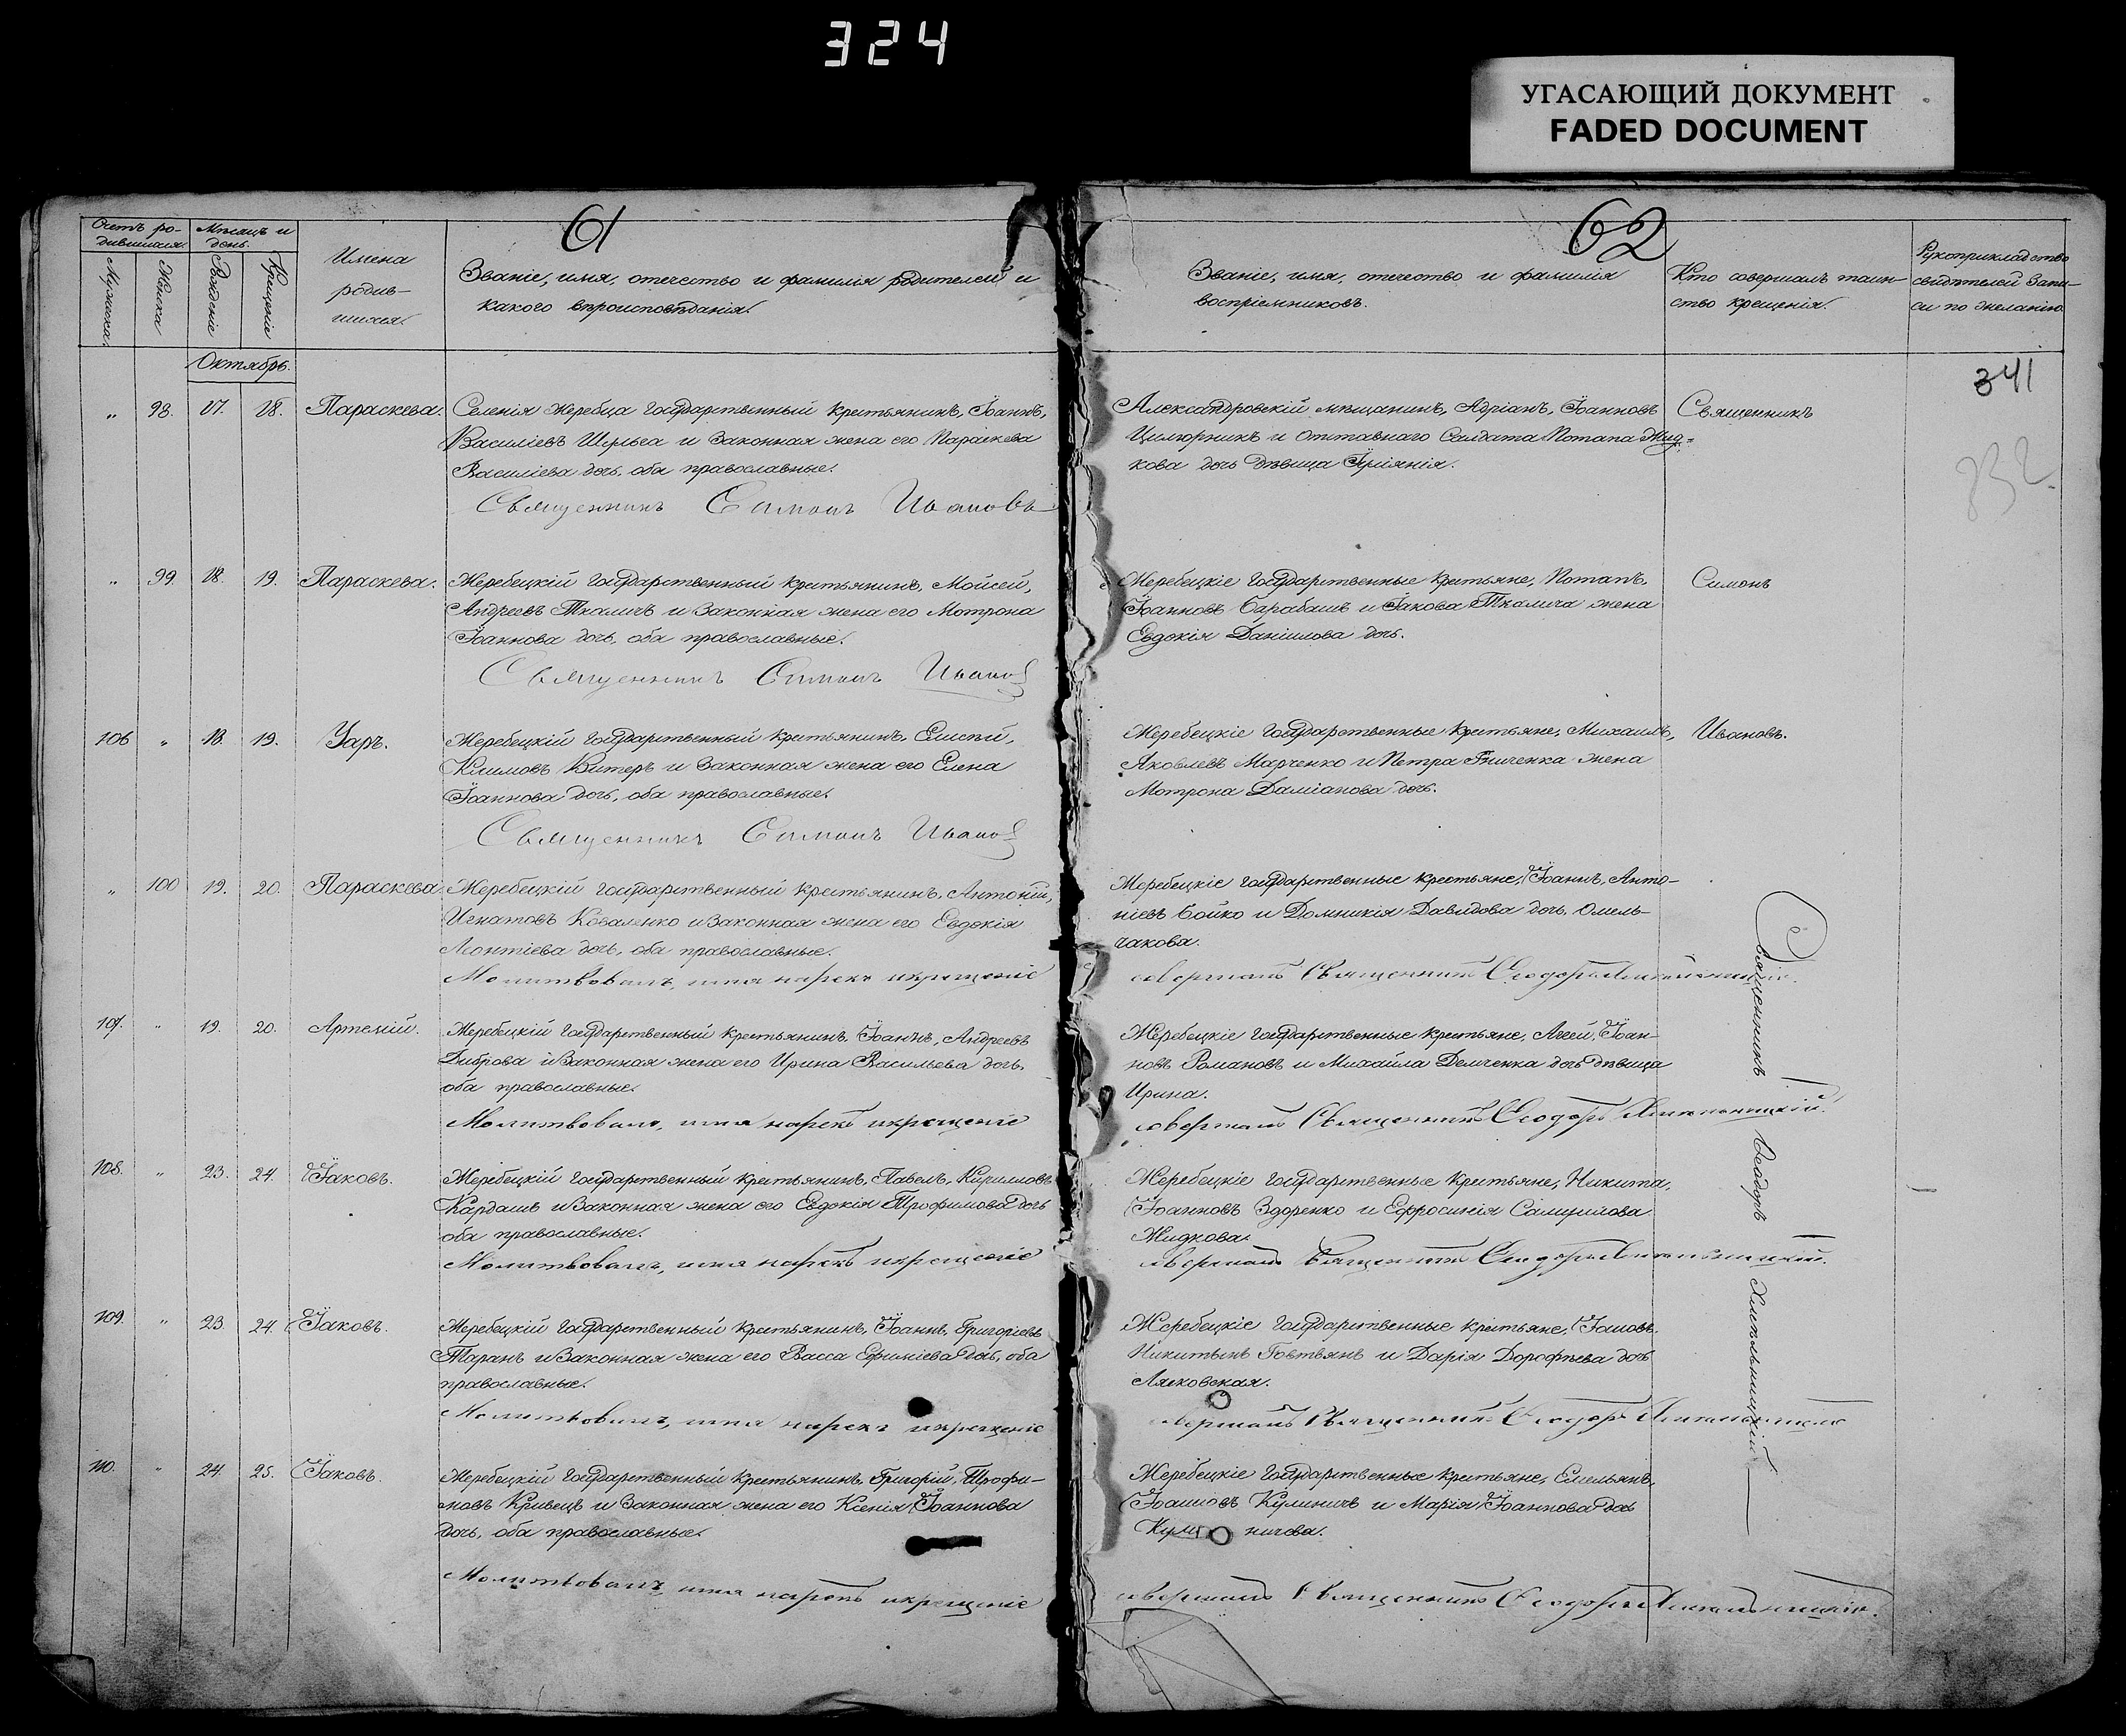 324
УГАСАЮЩИЙ ДОКУМЕНТ
FADED DOCUMENT
61
Счетъ ро-
дившихся.
Мѣсяцъ и
день.
Мужеска.
Женска
Рожденіе
Крещеніе
Имена
родив-
шихся.
Званіе, имя, отчество и фамилія родителей и
какого вѣроисповѣданія.
Октябрь.
„ 98. 17. 18. Параскева. Селенія Жеребца государственный крестьянинъ, Іоаннъ,
Василіевъ и законная жена его Параскева
Василіева дочь, оба православные.
Священникъ Симонъ Ивановъ
„ 99. 18. 19. Параскева. Жеребецкій государственный крестьянинъ, Мойсей,
Андреевъ Ткаличъ и законная жена его Мотрона
Іоаннова дочь, оба православные.
Священникъ Симонъ Ивановъ
106 „ 18. 19. Уаръ. Жеребецкій государственный крестьянинъ, Елисей,
Климовъ Витеръ и законная жена его Елена
Іоаннова дочь, оба православные.
Священникъ Симонъ Ивановъ
„ 100 19. 20. Параскева Жеребецкій государственный крестьянинъ, Антоній,
Игнатовъ Коваленко и законная жена его Евдокія
Леонтіева дочь, оба православные.
Молитвовалъ, имя нарекъ и крещеніе
107. „ 19. 20. Артемій. Жеребецкій государственный крестьянинъ Іоаннъ, Андреевъ
Диброва и законная жена его Ирина Васильева дочь.
оба православные.
Молитвовалъ, имя нарекъ и крещеніе
108. „ 23. 24. Іаковъ. Жеребецкій государственный крестьянинъ, Павелъ, Кирилловъ
Кардашъ и законная жена его Евдокія Трофимова дочь
оба православные.
Молитвовалъ, имя нарекъ и крещеніе
109. „ 23. 24. Іаковъ. Жеребецкій государственный крестьянинъ, Іоаннъ, Григоріевъ
Таранъ и законная жена его Васса Ефиміева дочь, оба
православные.
Молитвовалъ, имя нарекъ и крещеніе
110. „ 24. 25. Іаковъ. Жеребецкій государственный крестьянинъ Григорій, Трофи-
мовъ Кривецъ и законная жена его Ксенія Іоаннова
дочь, оба православные.
Молитвовалъ имя нарекъ и крещеніе
62
Званіе, имя, отчество и фамилія
воспріемниковъ.
Кто совершалъ таин-
ство крещенія.
Рукоприкладство
свидѣтелей запи-
си по желанію.
341
332
Александровскій мѣщанинъ, Адріанъ, Іоанновъ
Цилюрникъ и отставнаго Солдата Потапа Жид-
кова дочь дѣвица
Священникъ
Жеребецкіе государственные крестьяне, Потапъ,
Іоанновъ Барабашъ и Іакова Ткалича жена
Евдокія Даніилова дочь.
Симонъ
Жеребецкіе государственные крестьяне, Михаилъ,
Яковлевъ Марченко и Петра Гниченка жена
Мотрона Даміанова дочь.
Ивановъ.
Жеребецкіе государственные крестьяне, Іоаннъ, Анто-
ніевъ Бойко и Домникія Давидова дочь, Омель-
чакова.
совершалъ Священникъ Ѳеодоръ Хмельницкій.
Жеребецкіе государственные крестьяне, Аггей, Іоан-
новъ Романовъ и Михаила Демченка дочь дѣвица
Ирина.
совершалъ Священникъ Ѳеодоръ Хмельницкій.
Жеребецкіе государственные крестьяне, Никита,
Іоанновъ Здоренко и Ефросинія Самуилова
Жидкова.
совершалъ Священникъ Ѳеодоръ Хмельницкій.
Жеребецкіе государственные крестьяне,
Никитинъ Говтвянъ и Дарія Дорофѣева дочь
Ляховская.
совершалъ Священникъ Ѳеодоръ Хмельницкій
Жеребецкіе государственные крестьяне, Емельянъ,
Куличъ и Марія Іоаннова дочь
ничева.
совершалъ Священникъ Ѳеодоръ Хмельницкій.
Священникъ Ѳеодоръ Хмельницкій